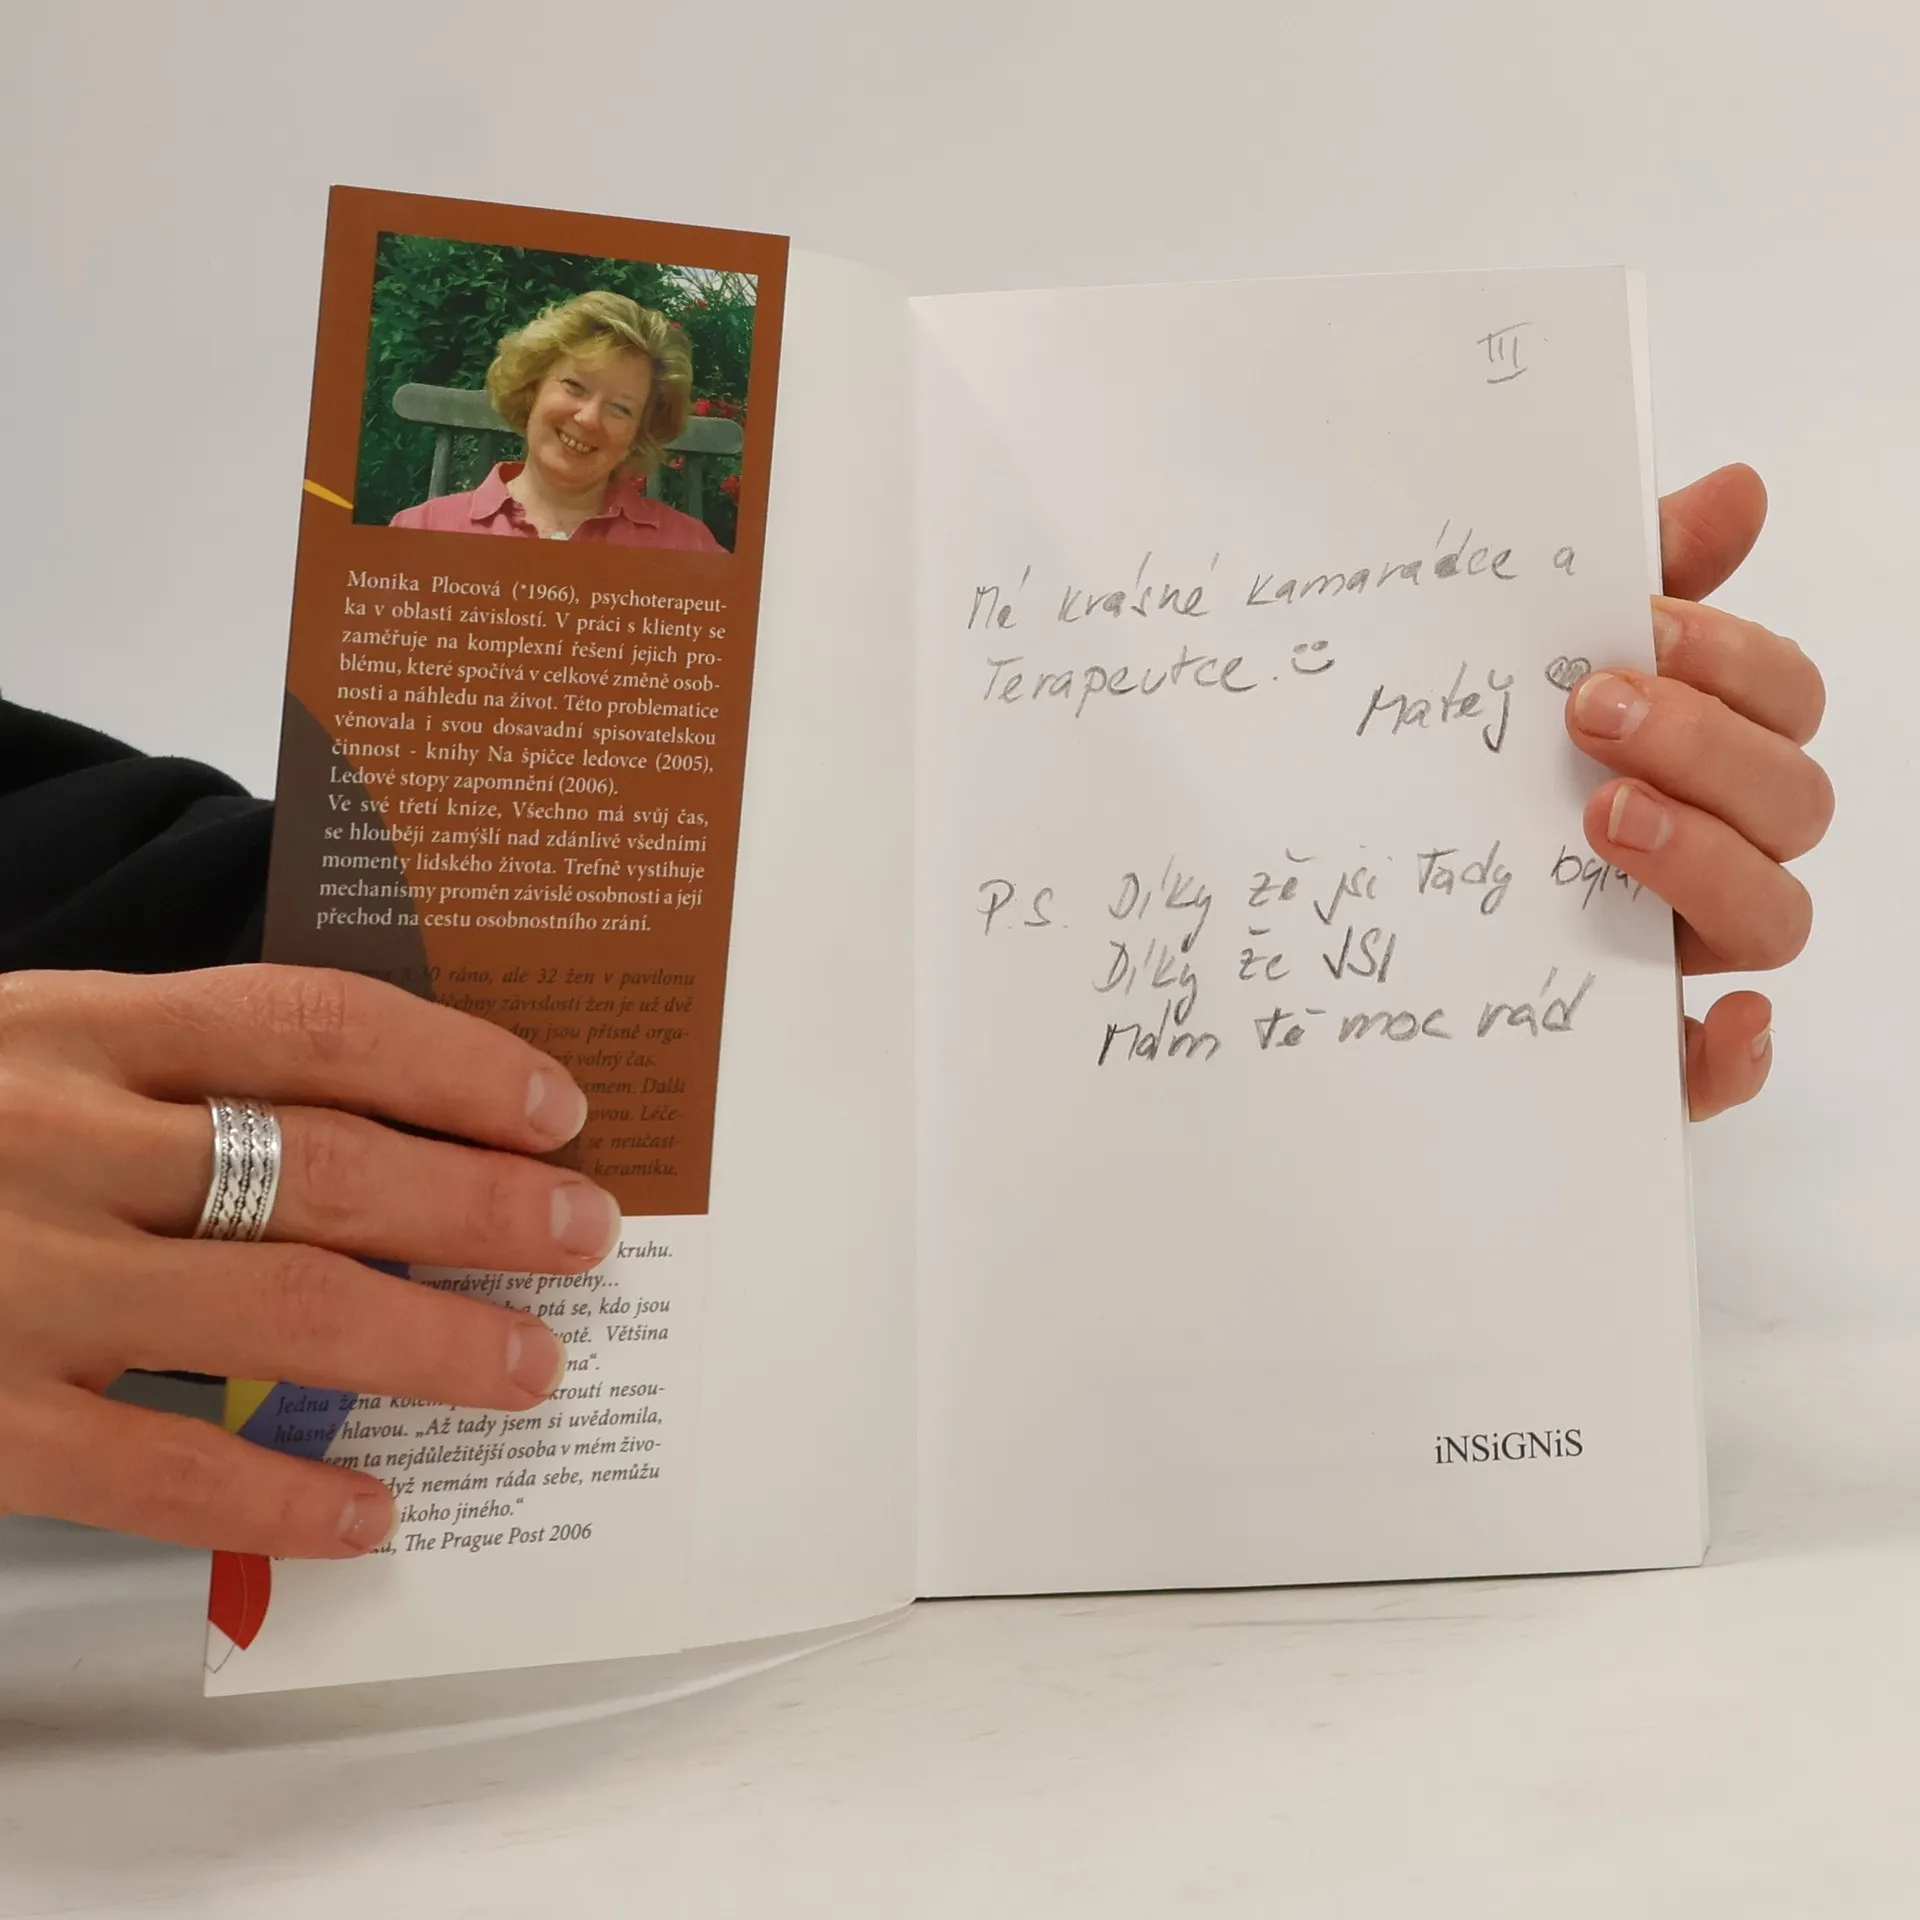 Monika Plocová (*1966), psychoterapeut-
ka v oblasti závislostí. V práci s klienty se
zaměřuje na komplexní řešení jejich pro-
blému, které spočívá v celkové změně osob-
nosti a náhledu na život. Této problematice
věnovala i svou dosavadní spisovatelskou
činnost - knihy Na špičce ledovce (2005),
Ledové stopy zapomnění (2006).
Ve své třetí knize, Všechno má svůj čas,
se hlouběji zamýšlí nad zdánlivě všedními
momenty lidského života. Trefně vystihuje
mechanismy proměn závislé osobnosti a její
přechod na cestu osobnostního zrání.
ráno, ale 32 žen v pavilonu
závislostí žen je už dvě
jsou přísně orga-
volný čas.
Další
Léče-
se neúčast-
keramiku,
kruhu.
vyprávějí své příběhy...
a ptá se, kdo jsou
Většina
na“.
kroutí nesou-
Jedna žena
hlasně hlavou. „Až tady jsem si uvědomila,
ta nejdůležitější osoba v mém živo-
nemám ráda sebe, nemůžu
jiného.“
The Prague Post 2006
III
Mé krásné kamarádce a
Terapeutce.
Matěj
P.S. Díky žě jsi tady
Díky že JSI
Mám tě moc rád
iNSiGNiS